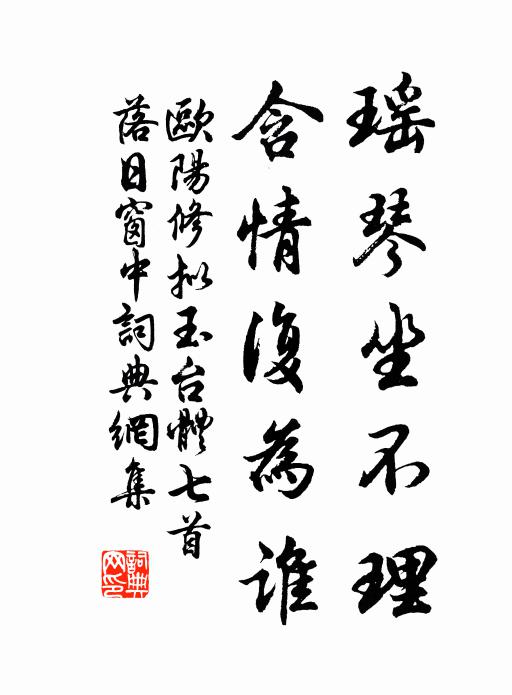 瑶琴坐不理
含情復為誰
歐陽修拟玉台體七首
落日窗中詞典網集
詞典網印